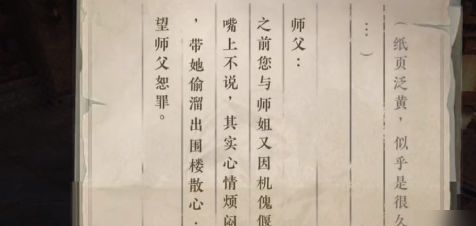 （纸页泛黄，似乎是很久
…）
师父：
之前您与师姐又因机傀偃
嘴上不说，其实心情烦闷
，带她偷溜出围楼散心．
望师父恕罪。